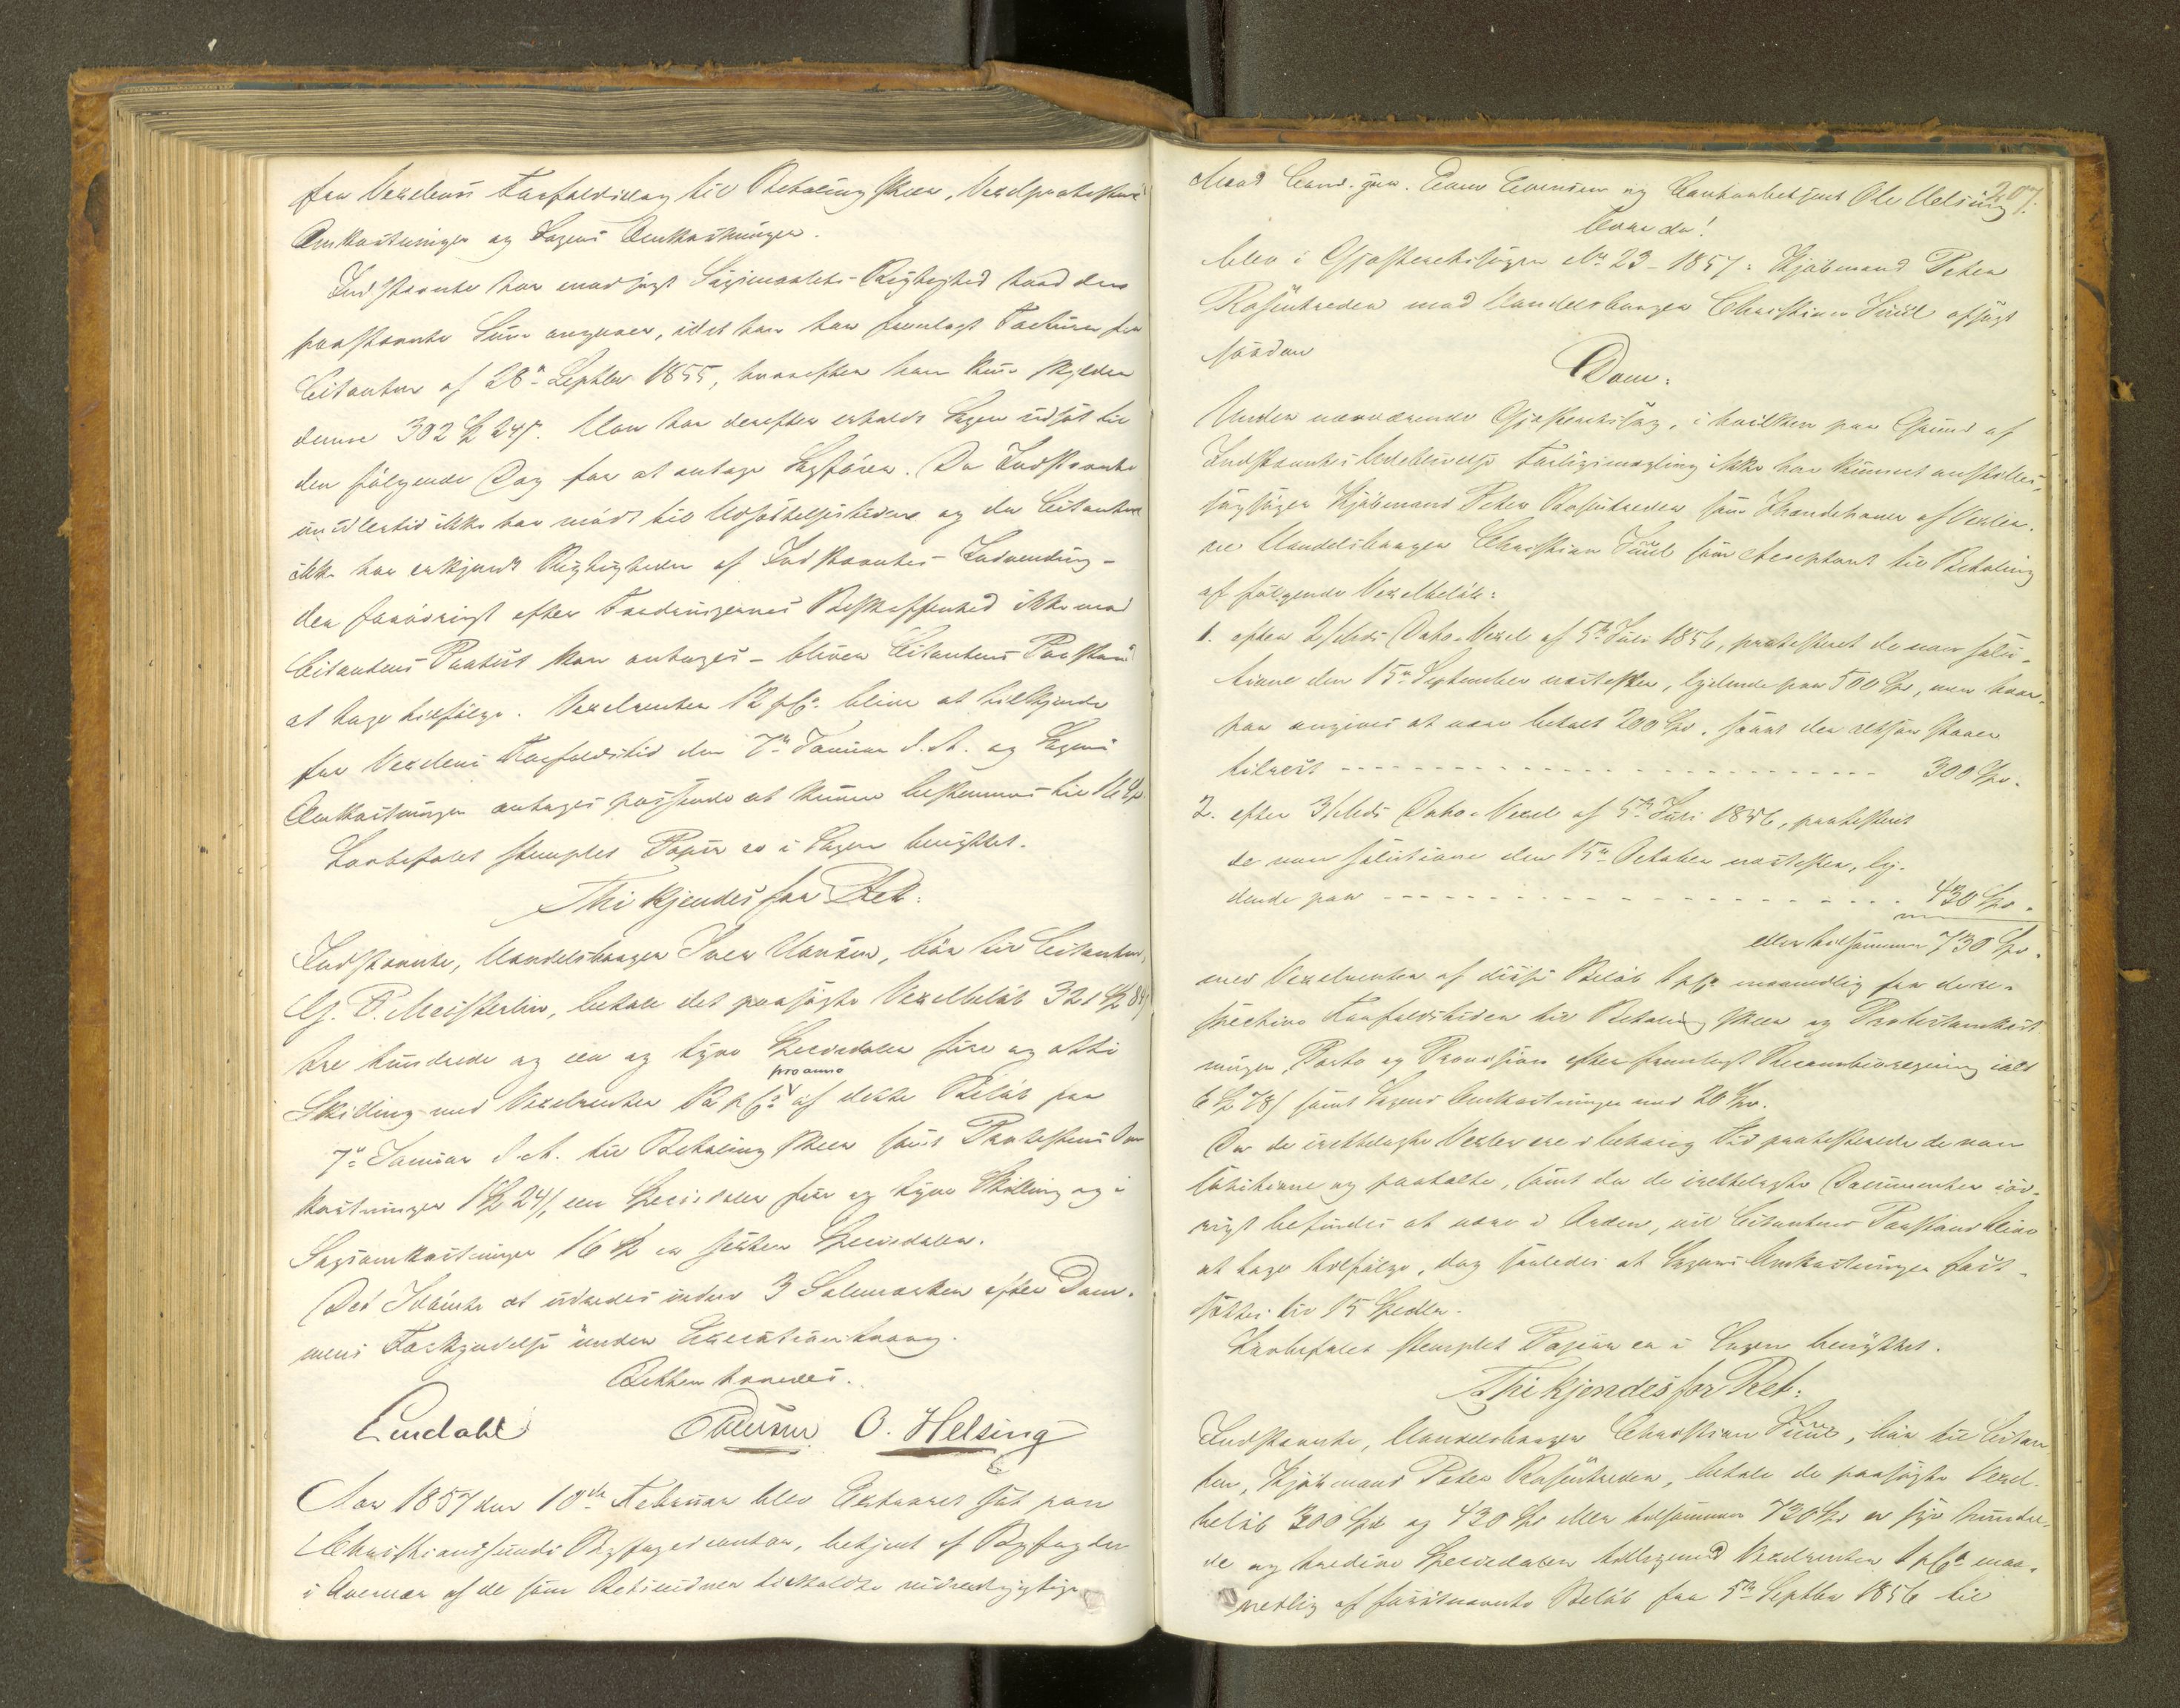 fra Vexelens Forfaldsdag til Betaling skeer, Vexelprotestens
Omkostninger og Sagens Omkostninger.
Indstevnte har modsagt Søgsmaalets Rigtighed hvad den
paastevnte Sum angaaer, idet han har fremlagt Factura fra
Citanten af 28de Septbr 1855, hvorefter han kun skylder
denne 302 Spd 24 s. Man har derefter erholdt Sagen udsat til
den følgende Dag for at antage Sagfører. Da Indstevnte
imidlertid ikke har mødt til Udsættelsestiden og da Citanten
ikke har erkjendt Rigtigheden af Indstevntes Indvending –
der forøvrigt efter Fordringernes Beskaffenhed ikke mod
Citantens Protest kan antages – bliver Citantens Paastand
at tage tilfølge. Vexelrenten 12 pCt. bliver at tilkjende
fra Vexelens Forfaldstid den 7de Januar d. A. og Sagens
Omkostninger antages passende at kunne bestemmes til 16 Spd.
Lovbefalet stemplet Papir er i Sagen benyttet.
Thi kjendes for Ret:
Indstevnte, Handelsborger Iver Hansen, bør til Citanten,
G. P. Meisterlin, betale det paasøgte Vexelbeløb 321 Spd 84 s
tre hundrede og een og tyve Speciedaler fire og otti
Skilling med Vexelrenter 12 pCt. pro anno af dette Beløb fra
7de Januar d. A. til Betaling skeer samt Protestens Om-
kostninger 1 Spd 24 s, een Speciedaler fire og tyve Skilling og i
Sagsomkostninger 16 Spd er sexten Speciedaler.
Det Idømte at udredes inden 3 Solemærker efter Dom-
mens Forkyndelse under Executionstvang.
Retten hævedes.
Lindahl O. Helsing
Aar 1857 den 10de Februar blev Extraret sat paa
Christianssunds Byfogedcontor, betjent af Byfogden
i Overvær af de som Retsvidner tilkaldte undertegnede
207.
Mænd Cand. jur. Evensen og Contorbetjent Ole Helsing
hvor da!
blev i Gjæsteretssagen No 23 – 1857: Kjøbmand Peter
mod Handelsborger Christian Juul afsagt
saadan
Dom:
Under nærværende Gjæsteretssag, i hvilken paa Grund af
Indstevntes Udeblivelse Forligsmægling ikke har kunnet anstilles,
søgsøger Kjøbmand Peter som Ihændehaver af Vexler-
ne Handelsborger Christian Juul som Acceptant til Betaling
af følgende Vexelbeløb:
1. efter 2/Mds Dato-Vexel af 5te Juli 1856, protesteret de non solu-
tione den 15de September næstefter, lydende paa 500 Spd, men hvor-
paa angives at være betalt 200 Spd, saant der altsaa staaer
tilrest - - - 300 Spd.
2. efter 3/Mds Dato-Vexel af 5te Juli 1856, protesteret
de non solutione den 15de October næstefter, ly-
dende paa - - - 430 Spd.
eller tilsammen 730 Spd.
med Vexelrenter af disse Beløb 1 pCt. maanedlig fra de re-
spective Forfaldstider til Betaling skeer og Protestomkost-
ninger, Porto og Provision efter fremlagt Recambioregning ialt
6 Spd 78 s samt Sagens Omkostninger med 20 Spd.
Da de irettelagte Vexler ere i behørig Tid protesterede de non
solutione og, samt da de irettelagte Documenter iøv-
rigt befindes at være i Orden, vil Citantens Paastand blive
at tage tilfølge, dog saaledes at Sagens Omkostninger fast-
sættes til 15 Spdlr.
Lovbefalet stemplet Papir er i Sagen benyttet.
Thi kjendes for Ret:
Indstevnte, Handelsborger Christian Juul, bør til Citan-
ten, Kjøbmand Peter betale de paasøgte Vexel-
beløb 300 Spd og 430 Spd eller tilsammen 730 Spd er syv hundre-
de og tredive Speciedaler tilligemed Vexelrenter 1 pCt. maa-
nedlig af førstnævnte Beløb fra 5te Septbr 1856 til